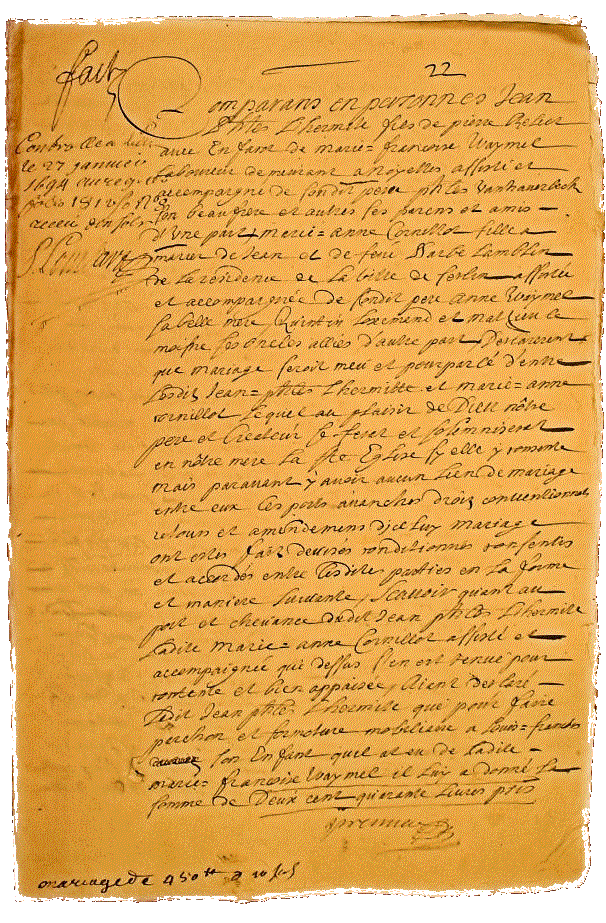 fait
22
Comparans en personnes Jean
ptes Lhermite fils de pierre Relict
avec Enfant de marie=francoise Waymel
Laboureur demeurant a Noyelles assisté et
accompagné de
son beau frere et autres ses parens et amis
d'Une part, marie=anne Cornillot fille a
marier de Jean et de feue Barbe Lamblin
de La residence de La ville de assistée
et accompagnée de Condit pere Anne Waymel
sa belle mere Quintin et Mathieu le
maistre ses oncles alliés d'autre part, Declarerent
que mariage seroit meu et pourparlé d'entre
Lesdit Jean=ptes Lhermitte et marie=anne
Cornillot Lequel au plaisir de Dieu nôtre
pere et Createur se ferat et solemniserat
en nôtre mere La ste Eglise sy elle y consente
mais paravant y avoir aucun Lien de mariage
entre eux Les ports avanches droix conventionnels
retours et amendemens d'iceluy mariage
ont estez faits devisés conditionnés consentis
et accordés entre Lesdites parties en La forme
et maniere suivente, Scavoir quant au
port et chevance dudit Jean ptes Lhermitte
Ladite marie=anne Cornillot assistée et
accompagnée que dessus s'en est tenue pour
contente et bien appaisée, Aiant declaré
Ledit Jean ptes Lhermitte que pour faire
parchon et formoture mobiliaire a Louis=francois
son Enfant quil at eu de Ladite
marie=francoise Waymel il Luy a donné La
somme de Deux cent quarante Livres
Controllé a
le 27 janvier
1694 au reg.
receu
mariage de 450 tt